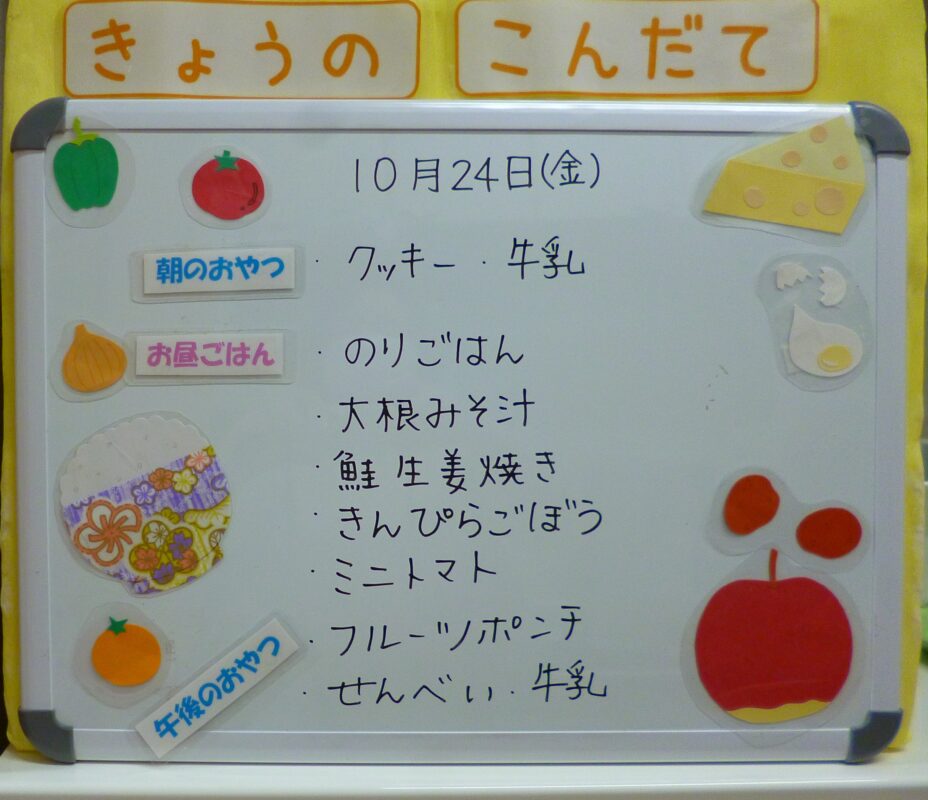 きょうの こんだて
10月24日(金)
朝のおやつ ・クッキー・牛乳
お昼ごはん ・のりごはん
・大根みそ汁
・鮭生姜焼き
・きんぴらごぼう
・ミニトマト
・フルーツポンチ
午後のおやつ ・せんべい・牛乳